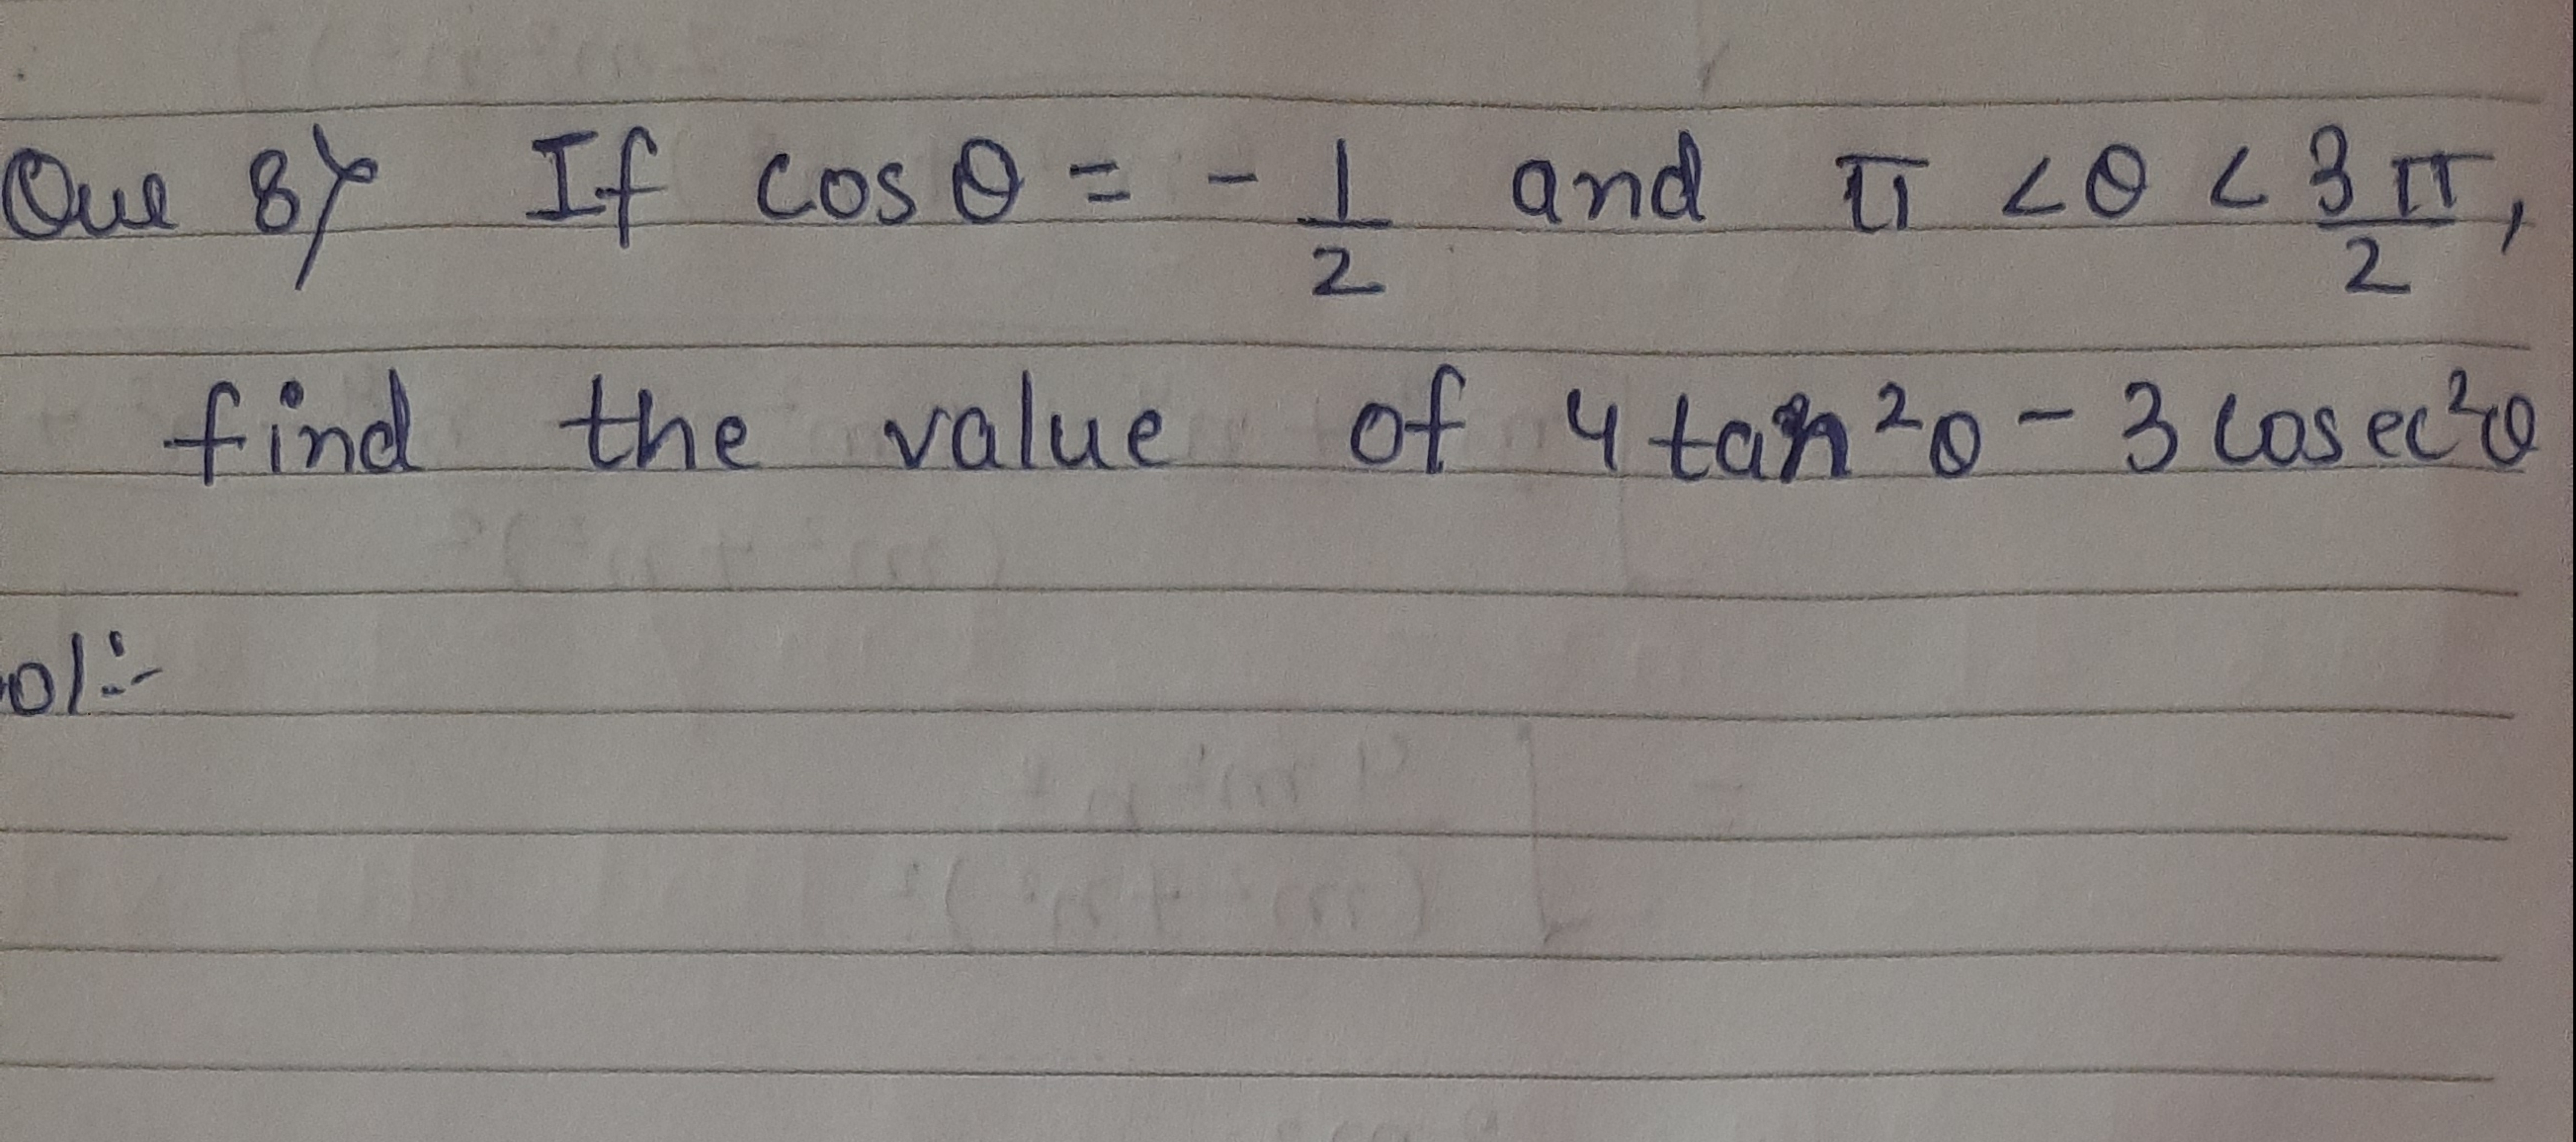 Que 8) If cos θ = - 1/2 and π < θ < 3π/2,
find the value of 4 tan²θ - 3 cosec²θ
ol:-